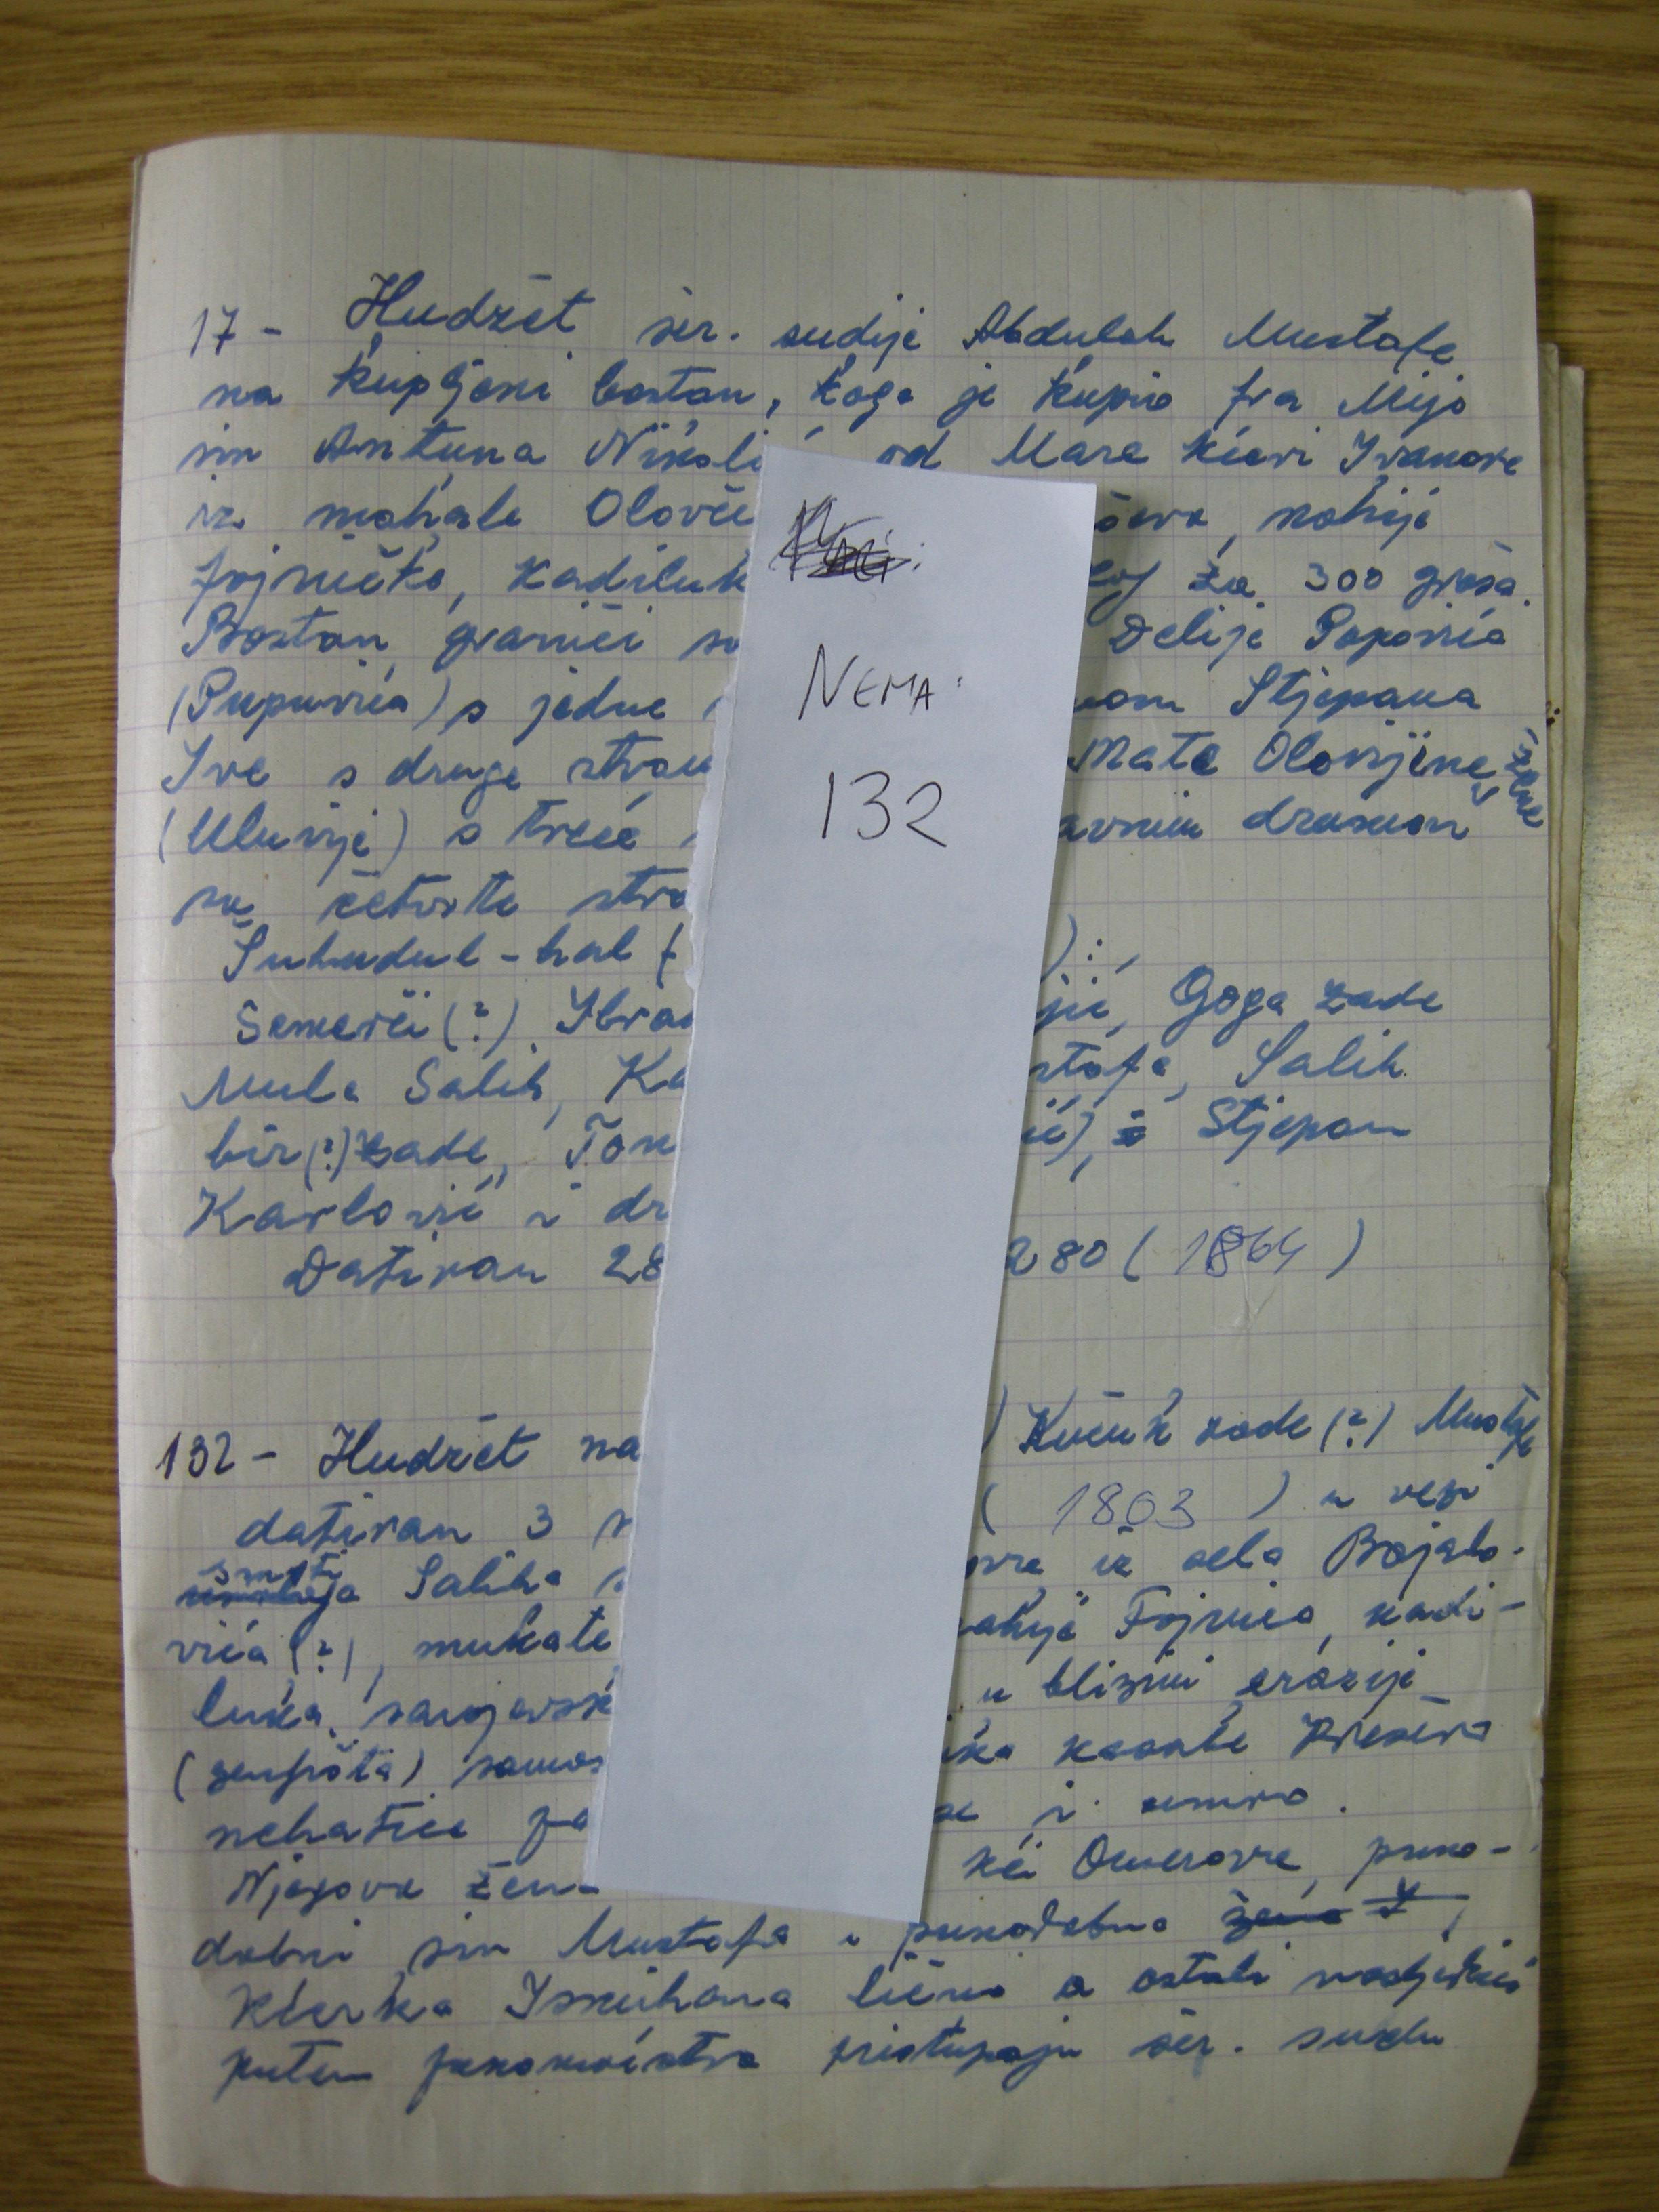 17 - Hudžet šer. sudije Abdulah Mustafe
na kupljeni bostan, koga je kupio fra Mijo
sin Antuna Nikoli od Mare kćeri Ivanove
iz mahale Olovči ševo, nahije
fojničke, kadiluk za 300 groša.
Bostan graniči sa Delije Popovića
(Pupuvića) s jedne Stjepana
Ive s druge stran Mate Olovijine žene
(Uluvije) s treće avnim drumom
sa četvrte stra
Šuhudul-hal ( ) :
Semerči (?) Ibra jić, Goga zade
Mula Salih, Ka stafa, Salih
bir(?)zade, Ton ić), Stjepan
Karlović i dr
Datiran 28 280 (1864)
132 - Hudžet na ) Kučuk zade (?) Mustafe
datiran 3 ( 1803 ) u vezi
smrti Saliha ovre iz sela Bojalo-
vića (?), mukate ahije Fojnica, kadi-
luka sarajevsk u blizini erazije
(zemljišta) samos ika kasabe Kreševa
nehatice pa i umro.
Njegova žena kći Omerova, puno-
dobni sin Mustafa i punodobna
kćerka Ismihana lično a ostali nasljednici
putem punomoćstva pristupaju šer. sudu
NEMA:
132